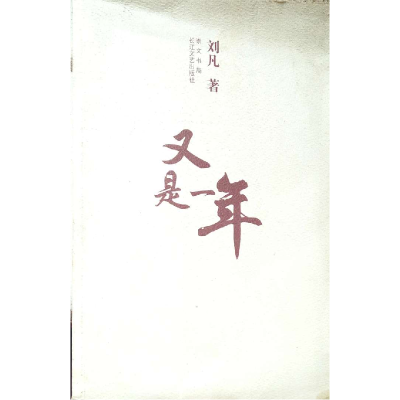 刘凡 著
崇文书局
长江文艺出版社
又
是一年